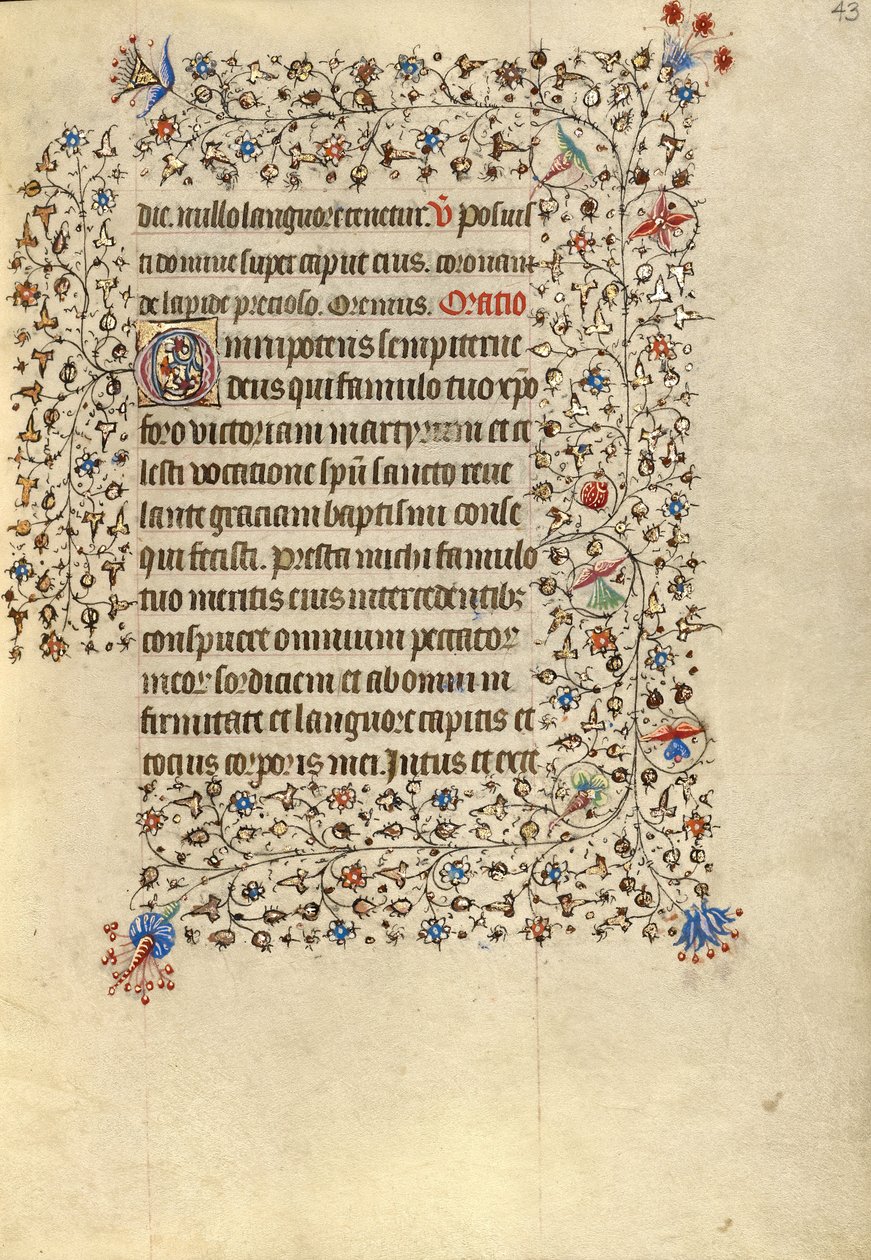 43
die. nullo languore tenetur. V̄ Posuis
ti domine super caput eius. coronam
de lapide precioso. Oremus. Oratio
Omnipotens sempiterne
deus qui famulo tuo xp̄o
foro victoriam martyrum et ce
lesti vocatione sp̄u sancto reve
lante graciam baptismi conse
qui fecisti. Presta michi famulo
tuo meritis eius intercedentibꝫ
conspuere omnium peccatoꝝ
meoꝝ sordiciem et ab omni in
firmitate et languore capitis et
tocius corporis mei. Intus et exte